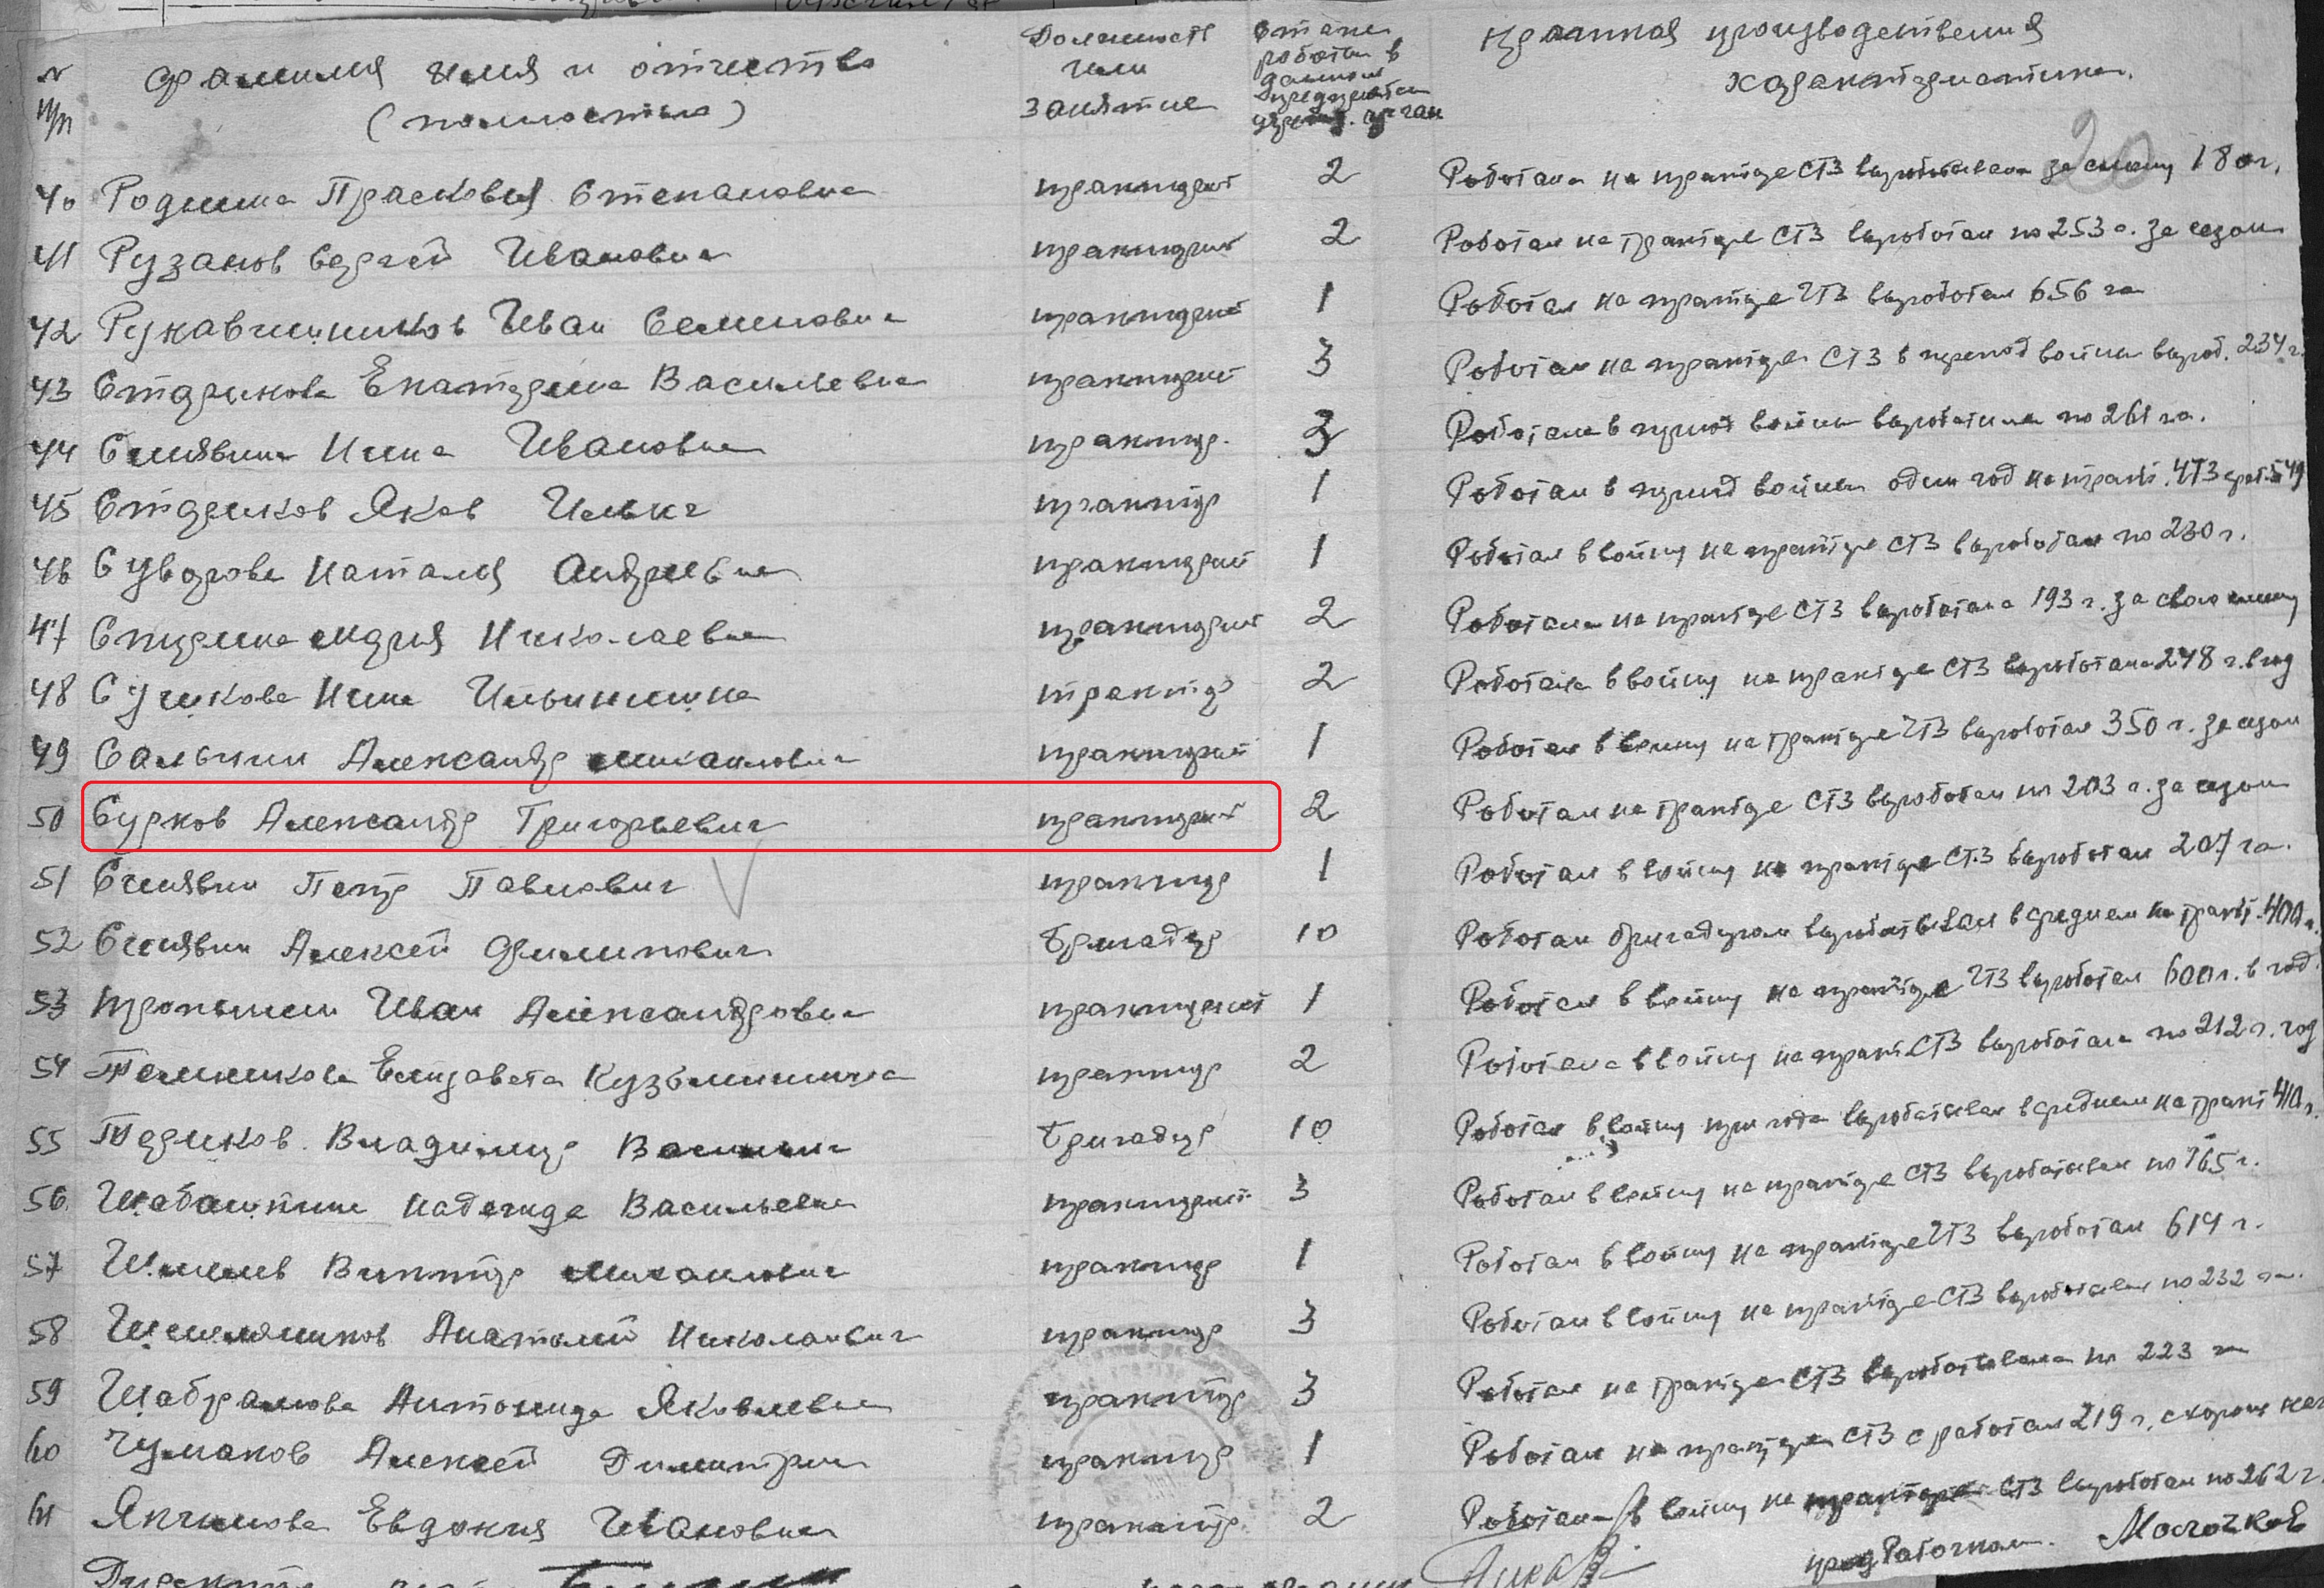 № п/п фамилия имя и отчество (полностью) Должность или занятие стаж работы в данном краткая производственная характеристика.
40 Родина Прасковья Степановна тракторист 2 Работала на тракторе СТЗ за смену 180 г.
41 Рузанов Сергей Иванович тракторист 2 Работал на тракторе СТЗ выработал по 253 г. за сезон
42 Рукавишников Иван Семенович тракторист 1 Работал на тракторе ЧТЗ выработал 656 га
43 Старикова Екатерина Васильевна тракторист 3 Работал на тракторе СТЗ в период войны выраб. 234 г.
44 Синявина Нина Ивановна трактор. 3 Работала в период войны выработала по 261 га.
45 Стариков Яков Ильич трактор 1 Работал в период войны один год на тракт. ЧТЗ
46 Суворова Наталья Андреевна тракторист 1 Работал в войну на тракторе СТЗ выработал по 230 г.
47 Спирина Мария Николаевна тракторист 2 Работала на тракторе СТЗ выработала 193 г. за свою смену
48 Сучкова Нина Ильинична трактор 2 Работала в войну на тракторе СТЗ выработала 248 г. в год
49 Сальнин Александр Михайлович тракторист 1 Работал в войну на тракторе ЧТЗ выработал 350 г. за сезон
50 Сурков Александр Григорьевич тракторист 2 Работал на тракторе СТЗ выработал по 203 г. за сезон
51 Синявин Петр Павлович трактор 1 Работал в войну на тракторе СТЗ выработал 207 га.
52 Синявин Алексей Филипович Бригадир 10 Работал бригадиром вырабатывал в среднем на тракт. 400 г.
53 Иван Александрович тракторист 1 Работал в войну на тракторе ЧТЗ выработал 600 г. в год
54 Темникова Елизавета Кузьминична трактор 2 Работала в войну на тракт. СТЗ выработала по 212 г. год
55 Териков Владимир Василич Бригадир 10 Работал в войну три года вырабатывал в среднем на тракт 410 г.
56 Надежда Васильевна тракторист 3 Работал в войну на тракторе СТЗ вырабатывал по 165 г.
57 Виктор Михайлович трактор 1 Работал в войну на тракторе ЧТЗ выработал 619 г.
58 Анатолий Николаевич трактор 3 Работал в войну на тракторе СТЗ вырабатывал по 232 га.
59 Шабрамова Антонида Яковлевна трактор 3 Работал на тракторе СТЗ вырабатывала по 223 га
60 Чумаков Алексей Димитрич трактор 1 Работал на тракторе СТЗ сработал 219 г.
61 Япчинова Евдокия Ивановна трактор. 2 Работала в войну на тракторе СТЗ выработал по 262 г.
пред Рабочком. Молочков